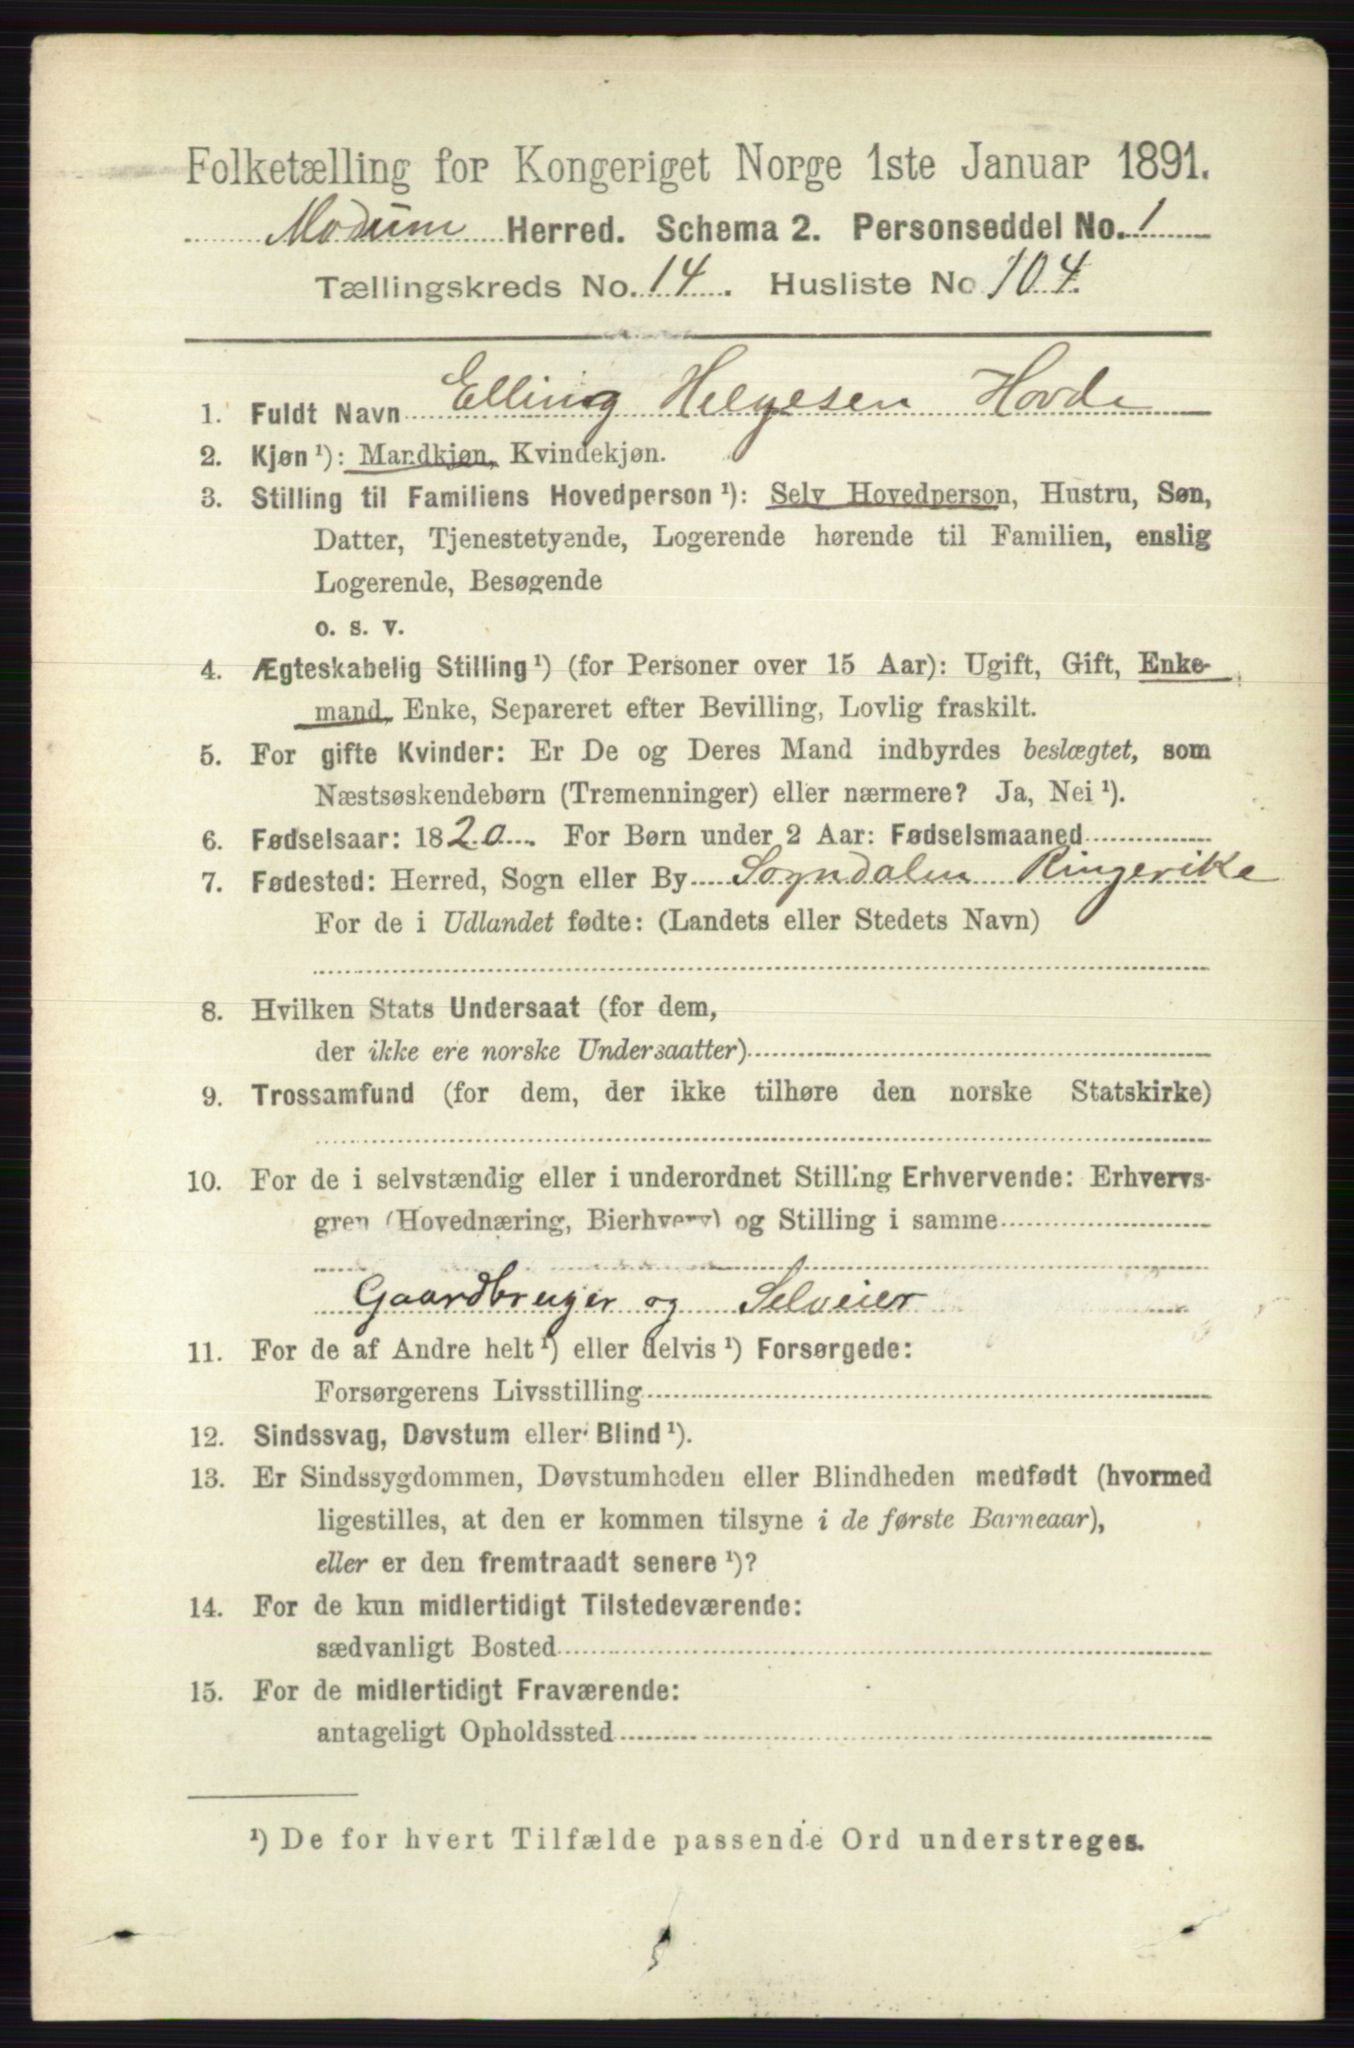 Folketælling for Kongeriget Norge 1ste Januar 1891.
Modum Herred. Schema 2. Personseddel No. 1
Tællingskreds No. 14. Husliste No 104.
1. Fuldt Navn Elling Helgesen Hovde
2. Kjøn ¹): Mandkjøn, Kvindekjøn.
3. Stilling til Familiens Hovedperson ¹): Selv Hovedperson, Hustru, Søn,
Datter, Tjenestetyende, Logerende hørende til Familien, enslig
Logerende, Besøgende
o. s. v.
4. Ægteskabelig Stilling ¹) (for Personer over 15 Aar): Ugift, Gift, Enke-
mand, Enke, Separeret efter Bevilling, Lovlig fraskilt.
5. For gifte Kvinder: Er De og Deres Mand indbyrdes beslægtet, som
Næstsøskendebørn (Tremenninger) eller nærmere? Ja, Nei ¹).
6. Fødselsaar: 1820. For Børn under 2 Aar: Fødselsmaaned
7. Fødested: Herred, Sogn eller By Sogndalen Ringerike
For de i Udlandet fødte: (Landets eller Stedets Navn)
8. Hvilken Stats Undersaat (for dem,
der ikke ere norske Undersaatter)
9. Trossamfund (for dem, der ikke tilhøre den norske Statskirke)
10. For de i selvstændig eller i underordnet Stilling Erhvervende: Erhvervs-
gren (Hovednæring, Bierhverv) og Stilling i samme
Gaardbruger og Selveier
11. For de af Andre helt ¹) eller delvis ¹) Forsørgede:
Forsørgerens Livsstilling
12. Sindssvag, Døvstum eller Blind ¹).
13. Er Sindssygdommen, Døvstumheden eller Blindheden medfødt (hvormed
ligestilles, at den er kommen tilsyne i de første Barneaar),
eller er den fremtraadt senere ¹)?
14. For de kun midlertidigt Tilstedeværende:
sædvanligt Bosted
15. For de midlertidigt Fraværende:
antageligt Opholdssted
¹) De for hvert Tilfælde passende Ord understreges.